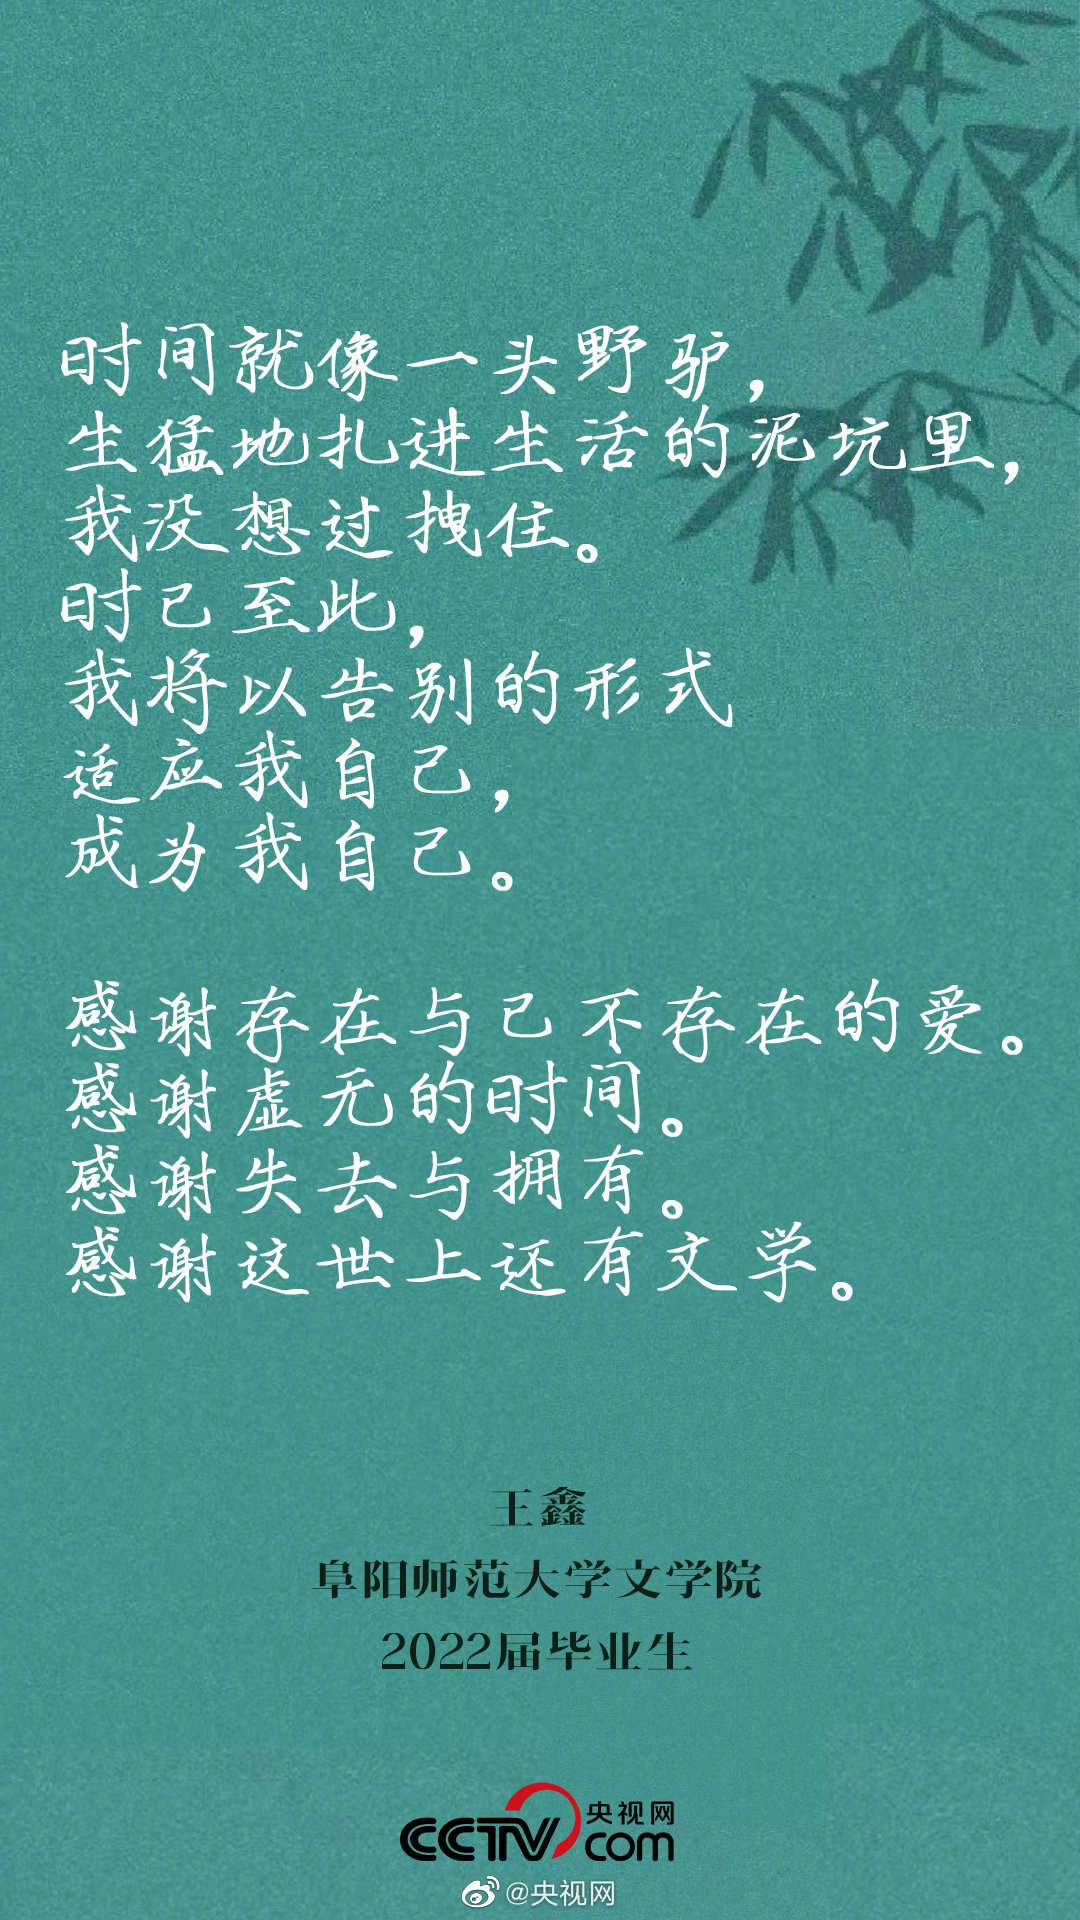 时间就像一头野驴，
生猛地扎进生活的泥坑里，
我没想过拽住。
时已至此，
我将以告别的形式
适应我自己，
成为我自己。
感谢存在与已不存在的爱。
感谢虚无的时间。
感谢失去与拥有。
感谢这世上还有文学。
王鑫
阜阳师范大学文学院
2022届毕业生
CCTV央视网
com
@央视网